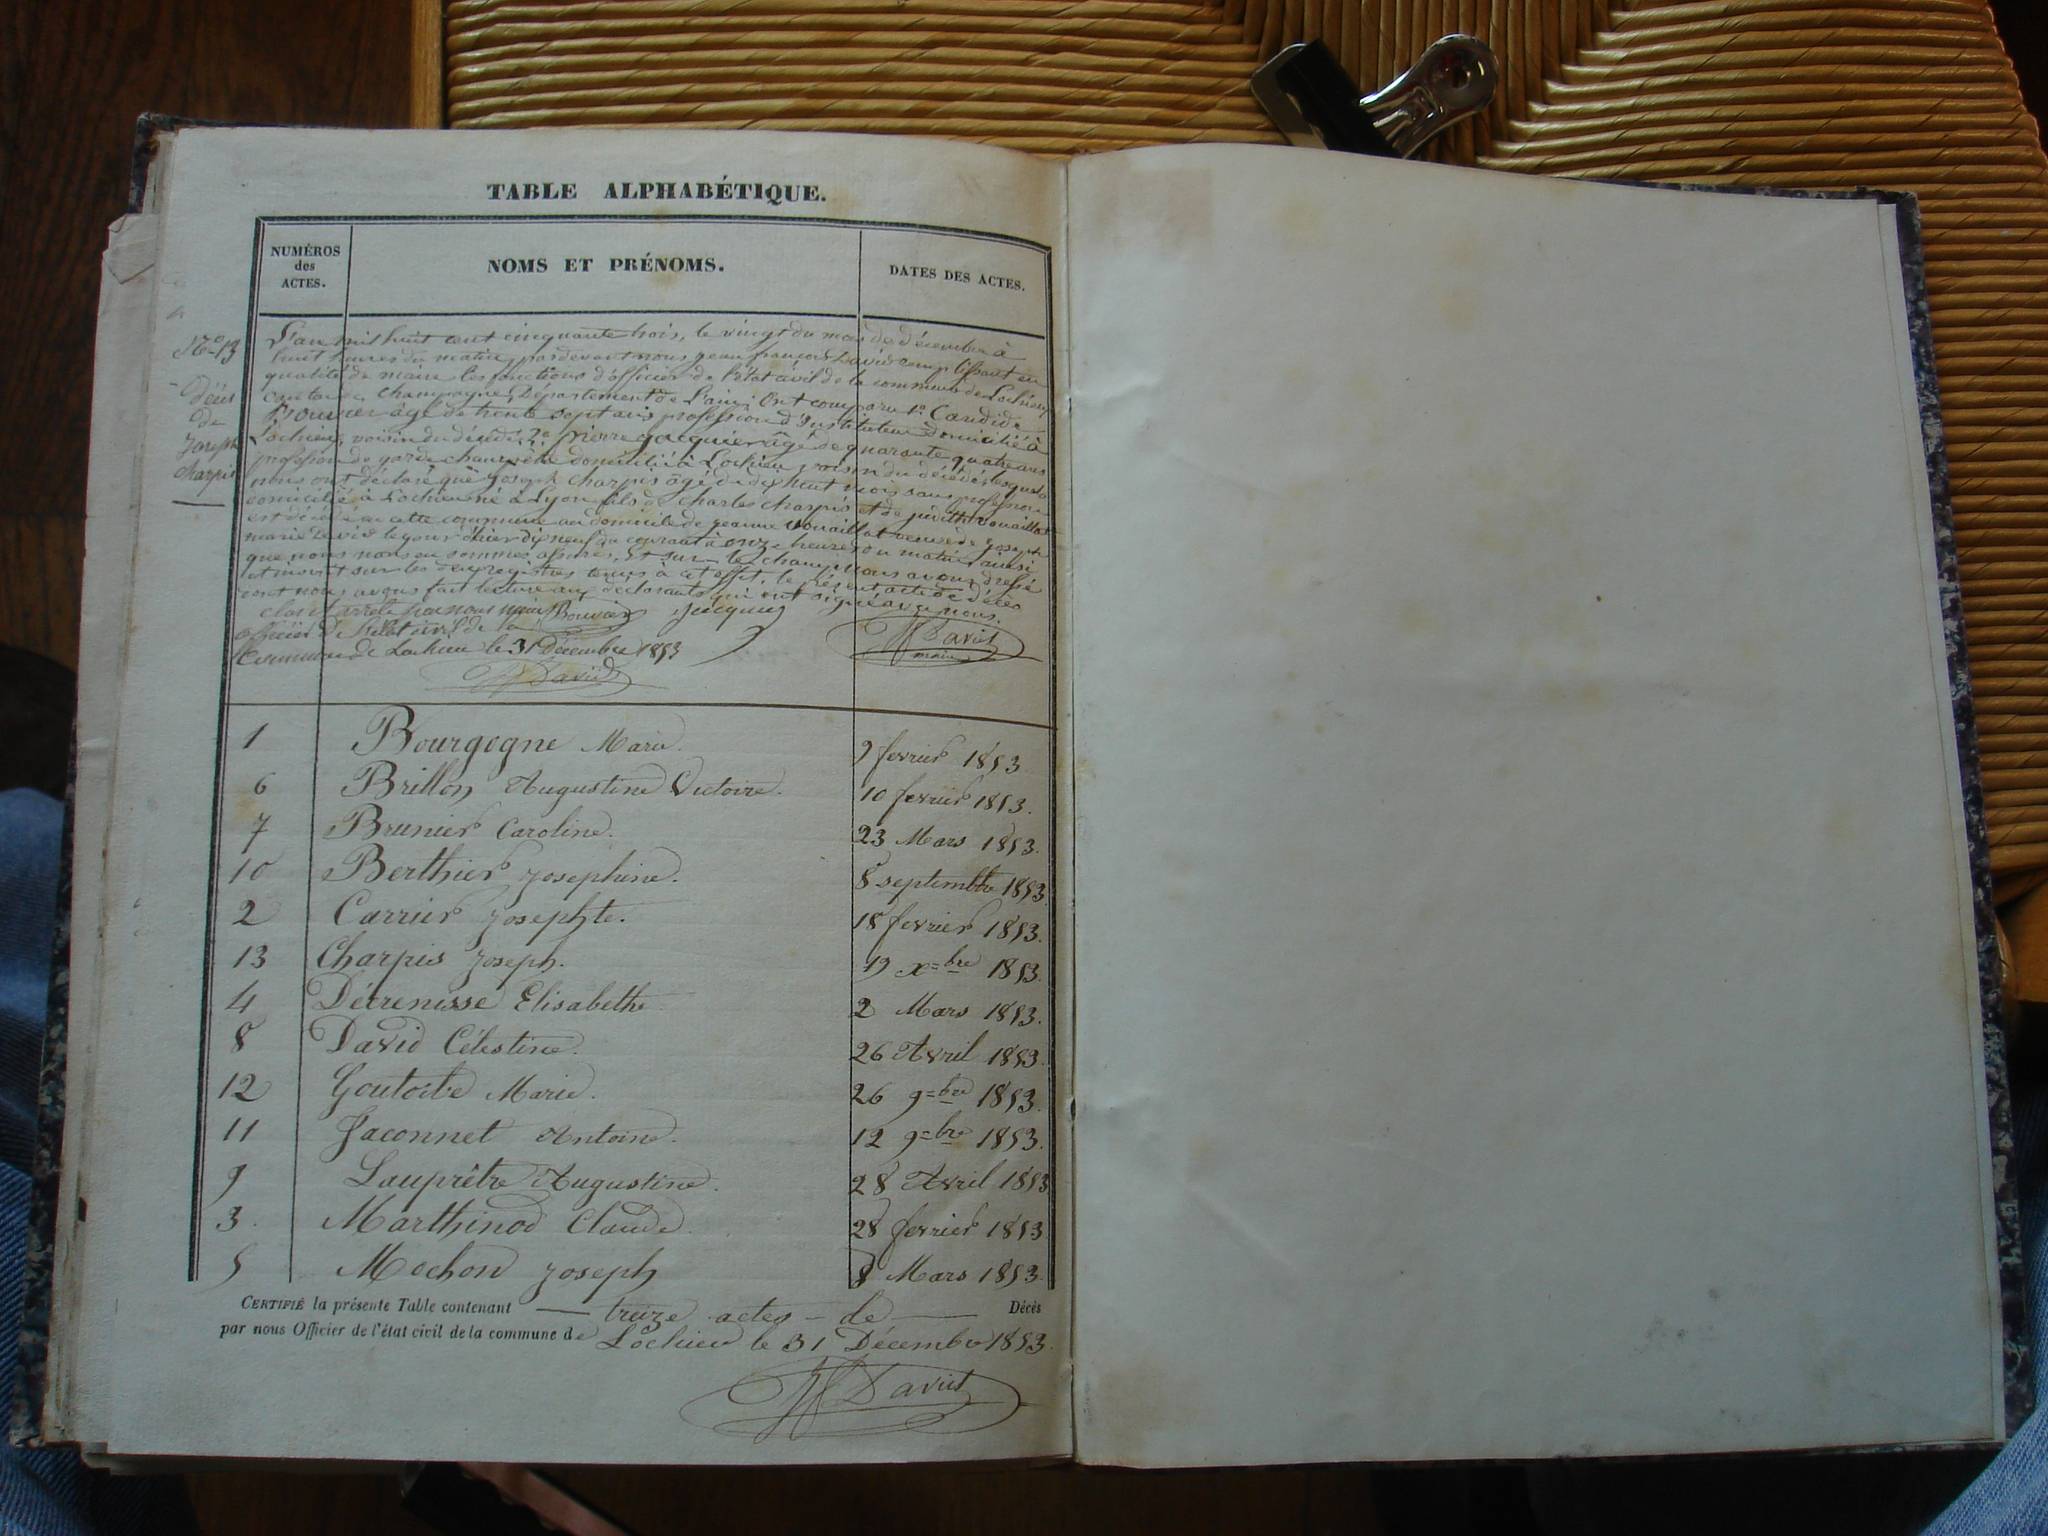 TABLE ALPHABÉTIQUE.
NUMÉROS des ACTES. NOMS ET PRÉNOMS. DATES DES ACTES.
N° 13
Décès
de
Joseph
Charpis
L'an mil huit cent cinquante trois, le vingt du mois de décembre à
huit heures du matin, pardevant nous jean françois David remplissant en
qualité de maire les fonctions d'officier de l'état civil de la commune de Lochieu
canton de Champagne, Département de l'ain; Ont comparu 1° Candide
Bouvier âgé de trente sept ans profession d'Instituteur domicilié à
Lochieu, voisin du décédé, 2° pierre jacquier âgé de quarante quatre ans
profession de garde champêtre domicilié à Lochieu voisin du décédé lesquels
nous ont déclaré que Joseph Charpis âgé de dix huit mois sans profession
domicilié à Lochieu né à Lyon fils de Charles Charpis et de judith Vouaillat
est décédé en cette commune au domicile de jeanne Vouaillat veuve de joseph
marie le jour d'hier dix neuf du courant à onze heures du matin, ainsi
que nous nous en sommes assurés. Et sur le champ nous avons dressé
et inscrit sur les deux registres tenus à cet effet, le présent acte de décès
dont nous avons fait lecture aux déclarants qui ont signé avec nous.
clos et arreté par nous maire Bouvier Jacquier
officier de l'état civil de la JfDavid
Commune de Lochieu le 31 Décembre 1853 maire
JfDavid
1 Bourgogne Marie. 9 fevrier 1853
6 Brillon Augustine Victoire. 10 fevrier 1853.
7 Brunier Caroline. 23 Mars 1853.
10 Berthier Josephine. 8 septembre 1853
2 Carrier Josephte. 18 fevrier 1853.
13 Charpis Joseph. 19 x=bre 1853.
4 Décrenisse Elisabethe 2 Mars 1853.
8 David Célestine. 26 Avril 1853.
12 Goutorbe Marie. 26 9=bre 1853.
11 Jaconnet Antoine. 12 9=bre 1853.
9 Lauprêtre Augustine. 28 Avril 1853
3. Marthinod Claude. 28 fevrier 1853
5 Mochon Joseph 8 Mars 1853.
CERTIFIÉ la présente Table contenant — treize actes - de — Décès
par nous Officier de l'état civil de la commune de Lochieu le 31 Décembre 1853.
JfDavid